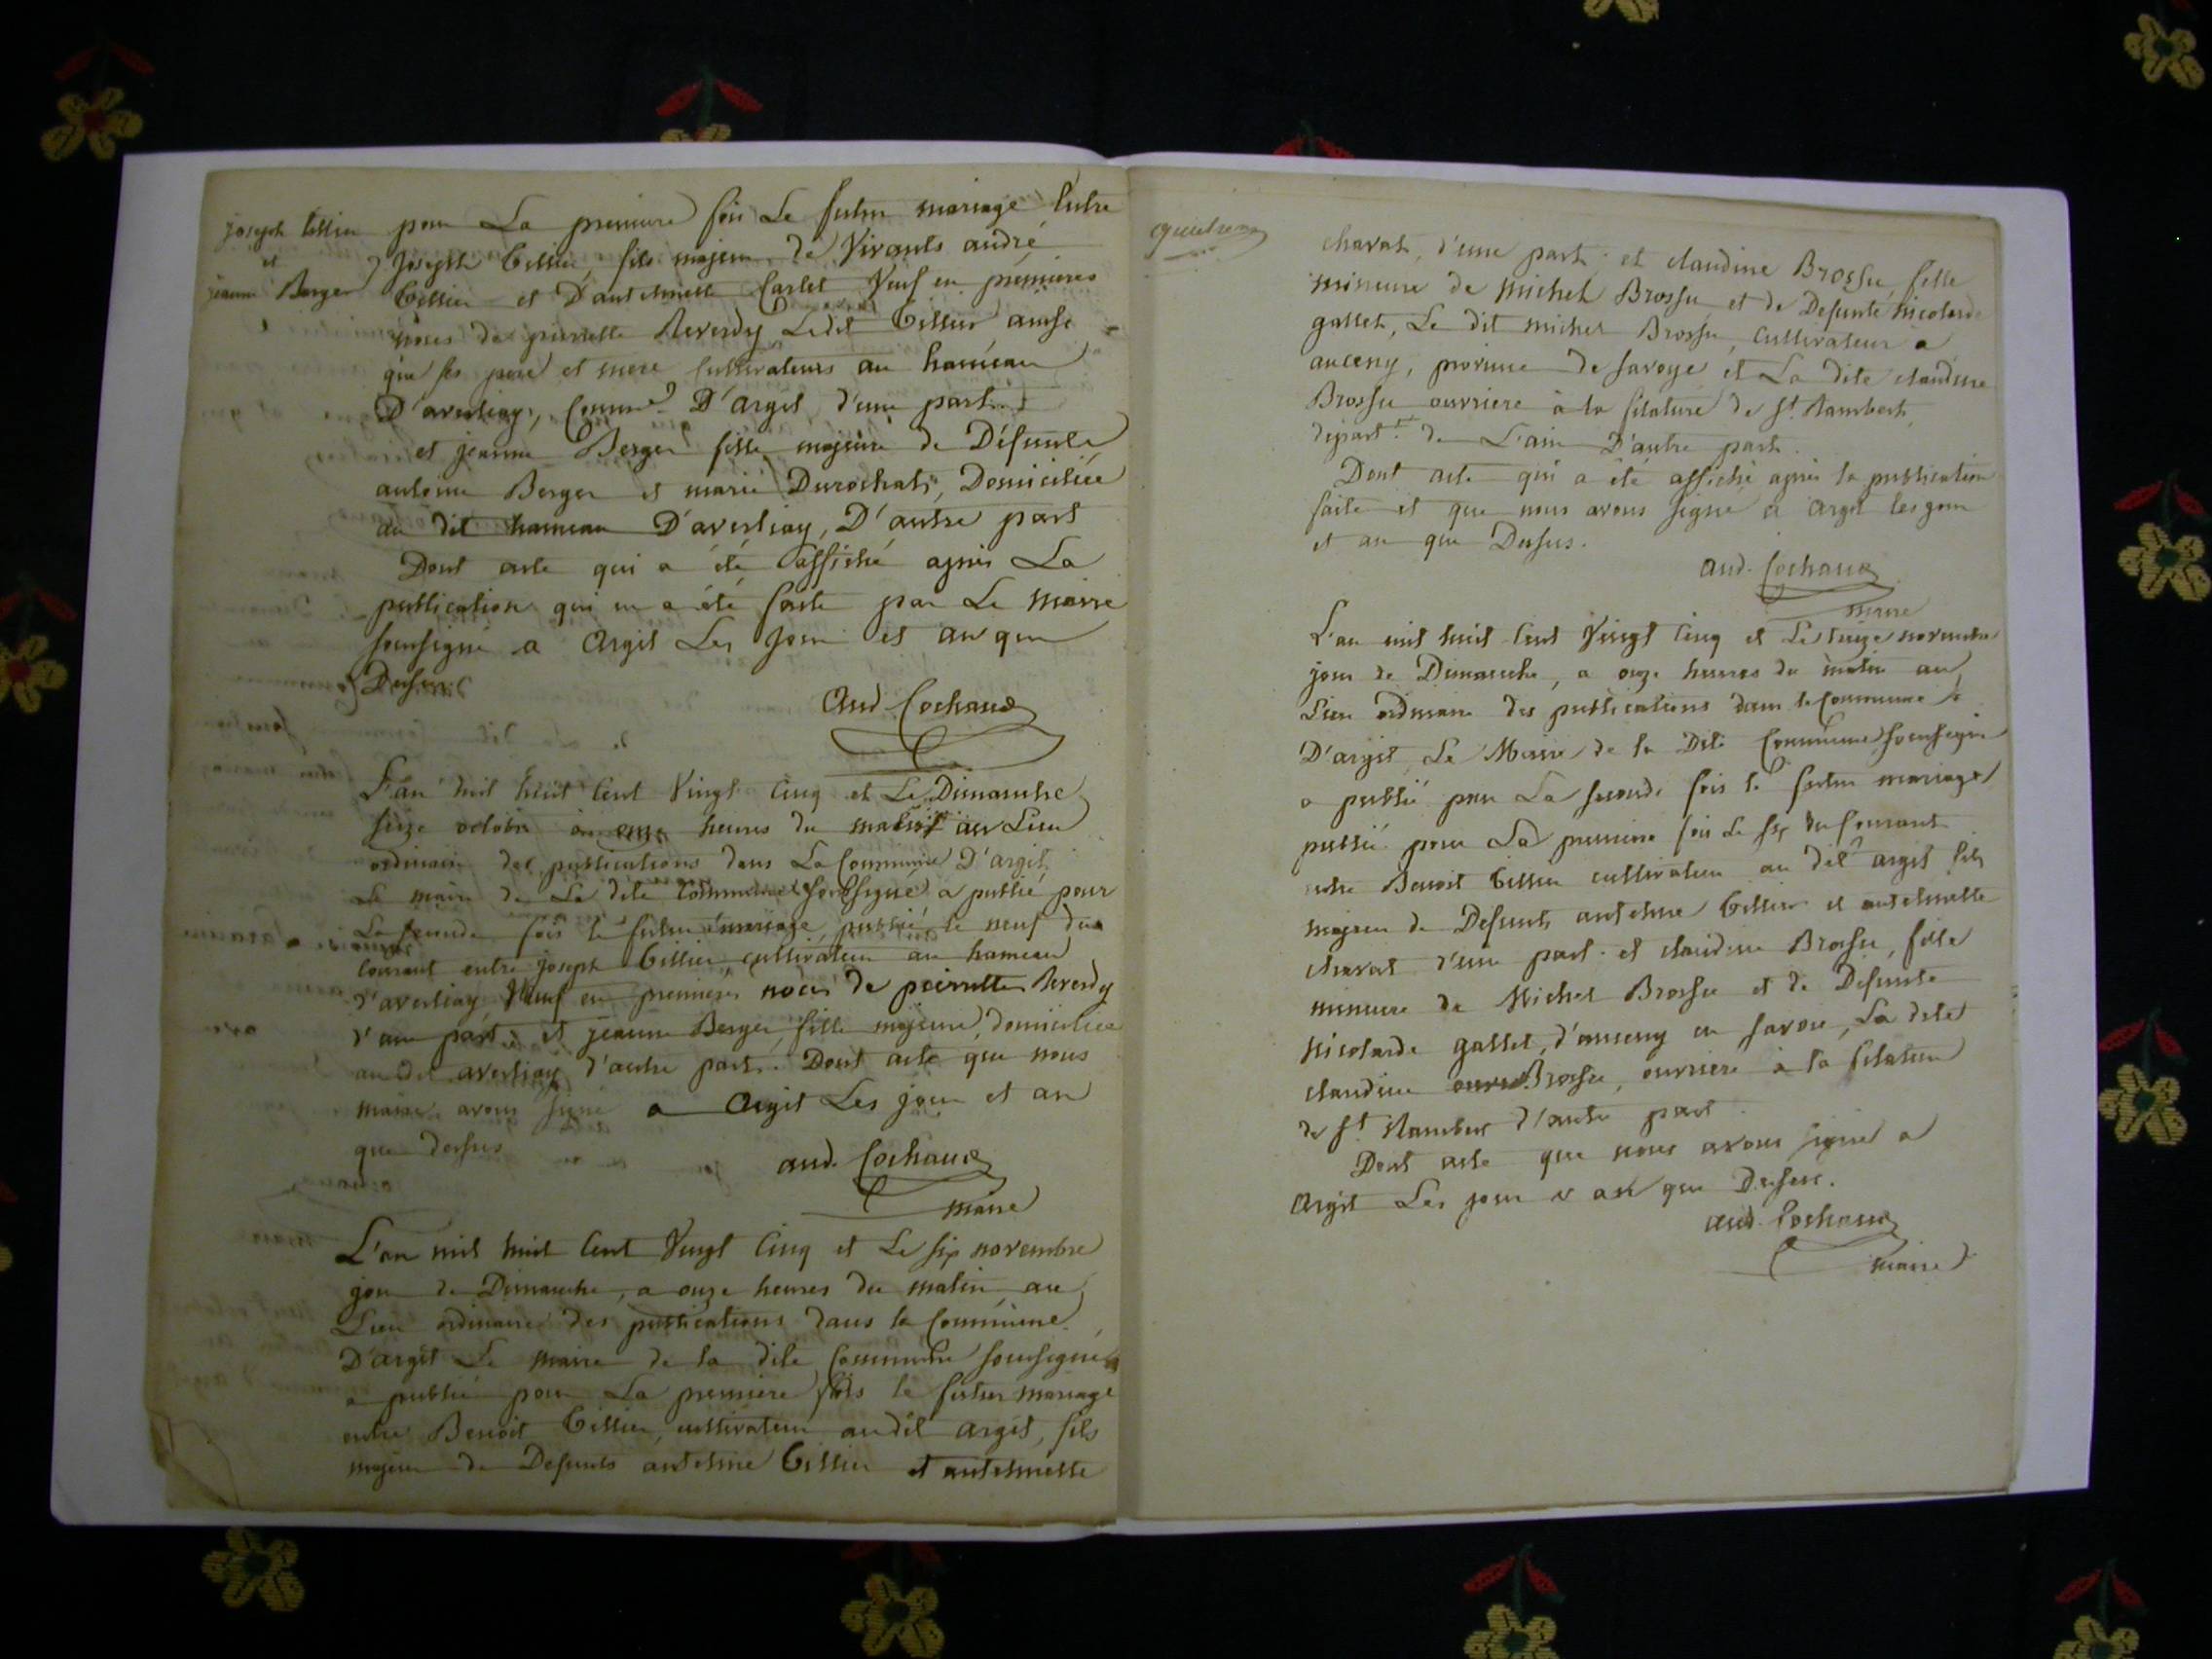 joseph tillier
et
jeanne Berger
pour La premiere fois Le futur mariage Entre
Joseph Tillier, fils majeur de Vivants andré
Tillier et D'antelmette Carlet Veuf en premieres
noces de pierrette Reverdy Le dit Tillier ainsi
que ses pere et mere Cultivateurs au hameau
D'averliay, Commne D'argit d'une part.
et jeanne Berger fille majeure de Défunts
antoine Berger et marie Durochat, Domiciliée
au dit hameau D'averliay, D'autre part
Dont acte qui a été affiché après La
publication qui en a été faite par Le Maire
soussigné a Argit Les Jour et an que
Dessus
And Cochaud
L'an mil huit Cent Vingt Cinq et Le Dimanche
seize octobre à onze heures du matin au Lieu
ordinaire des publications dans La Commune D'argit
Le maire de La dite Commune soussigné a publié pour
La seconde fois le futur mariage publié le neuf du
Courant entre joseph Tillier cultivateur au hameau
d'averliay Veuf en premieres noces de pierrette Reverdy
d'une part, et jeanne Berger fille majeure domiciliée
au dit averliay d'autre part. Dont acte que nous
maire avons signé a Argit Les jour et an
que dessus
and. Cochaud
maire
L'an mil huit Cent Vingt Cinq et Le six novembre
jour de Dimanche, a onze heures du matin, au
Lieu ordinaire des publications dans la Commune
D'argit Le maire de la dite Commune soussigné
a publié pour La premiere fois le futur mariage
entre Benoit Tillier, cultivateur au dit argit, fils
majeur de Defunts antelme Tillier et antelmette
charat, d'une part; et claudine Brossu, fille
mineure de Michel Brossu et de Defunte Nicolarde
gallet, Le dit michel Brossu, Cultivateur a
anceny, province de savoye et La dite claudine
Brossu ouvriere à la filature de St. Rambert,
depart.t de L'ain D'autre part.
Dont acte qui a été affiché après la publication
faite et que nous avons signé a Argit les jour
et an que Dessus.
And. Cochaud
maire
L'an mil huit Cent Vingt Cinq et Le treize novembre
jour de Dimanche, a onze heures du matin au
Lieu ordinaire des publications dans la Commune
D'argit, Le Maire de la Dite Commune soussigné
a publié pour La seconde fois le futur mariage
publié pour La premiere fois Le six du Courant
entre Benoit Tillier cultivateur au dit argit fils
majeur de Defunts antelme Tillier et antelmette
charat d'une part. et claudine Brossu, fille
mineure de Michel Brossu et de Defunte
Nicolarde gallet, d'anceny en savoie, La dite
claudine Brossu, ouvriere à la filature
de St. Rambert d'autre part.
Dont acte que nous avons signé a
Argit Les jour et an que Dessus.
and. Cochaud
maire